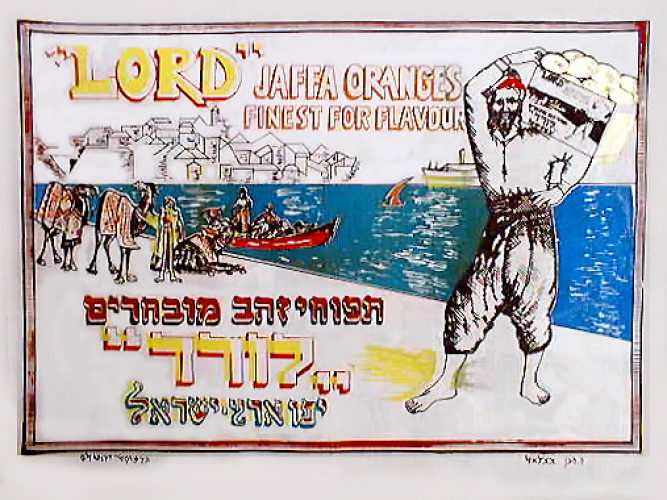 "LORD" JAFFA ORANGES
FINEST FOR FLAVOUR
תפוחי זהב מובחרים
"לורד"
יפו ארץ-ישראל